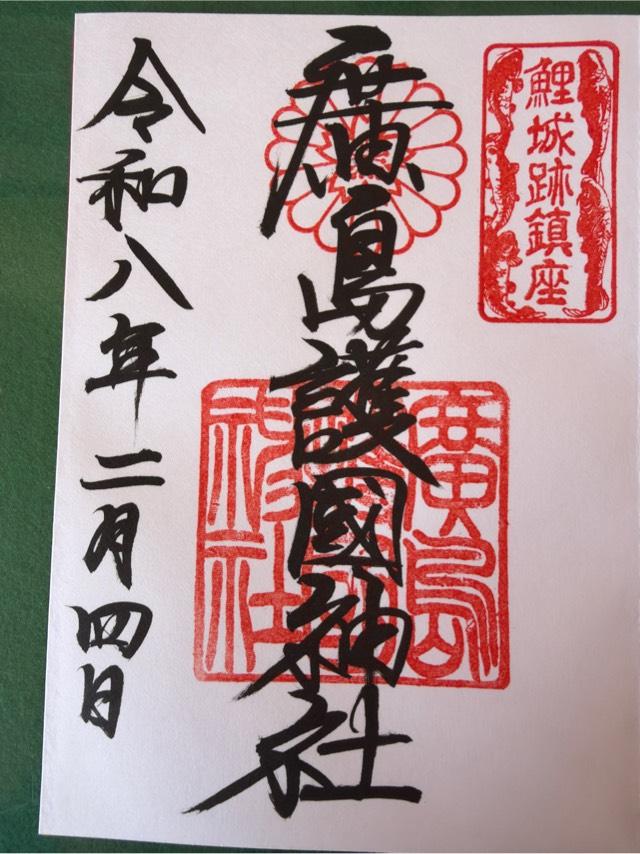 鯉城跡鎮座
廣島護國神社
廣島護國神社
令和八年二月四日